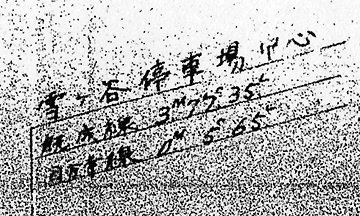 雪ヶ谷停車場中心
既成線 3M77C35L
目蒲線 0M 5C65L